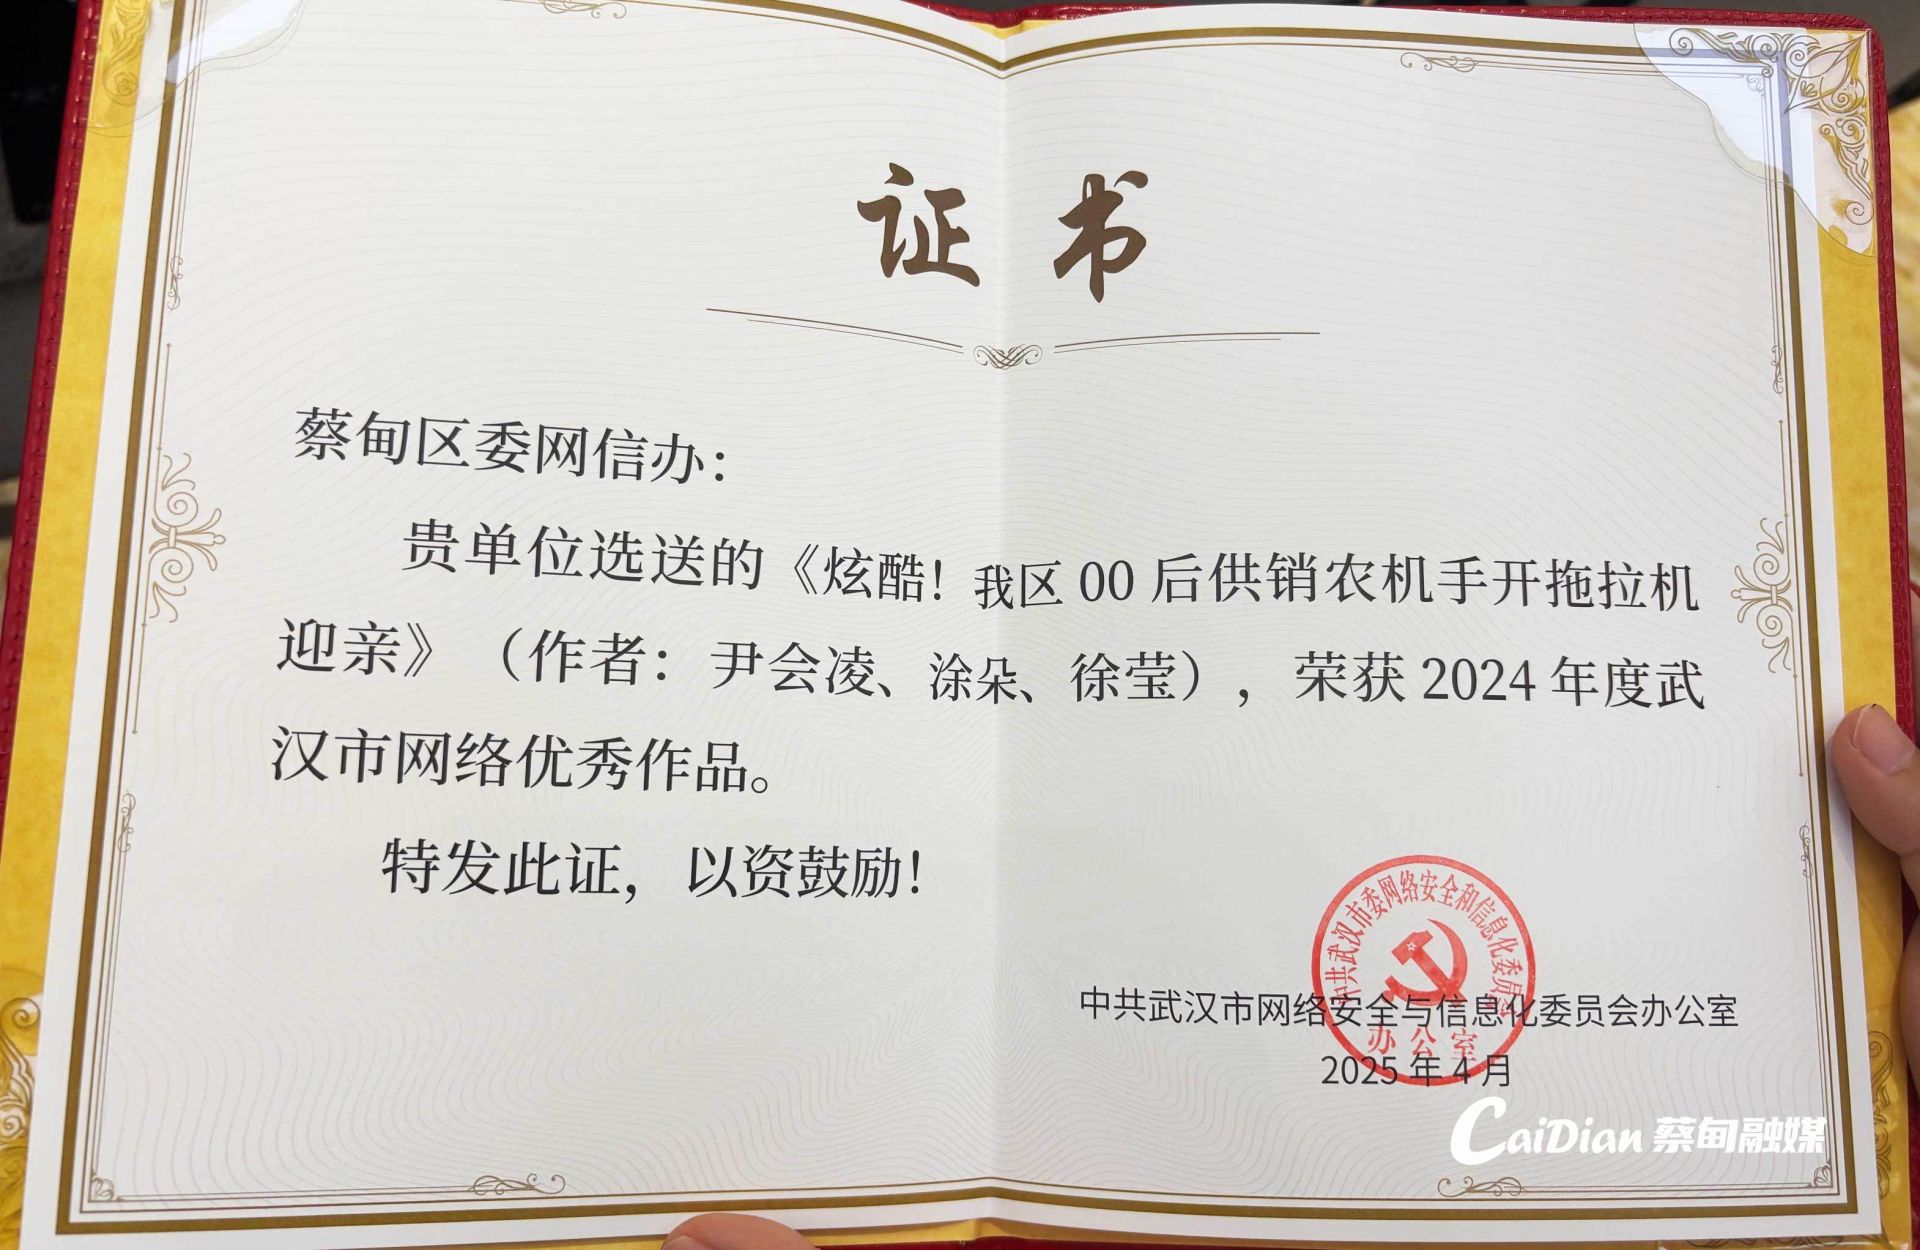 证书
蔡甸区委网信办：
贵单位选送的《炫酷！我区00后供销农机手开拖拉机
迎亲》（作者：尹会凌、涂朵、徐莹），荣获2024年度武
汉市网络优秀作品。
特发此证，以资鼓励！
中共武汉市委网络安全和信息化委员会
办公室
中共武汉市网络安全与信息化委员会办公室
2025年4月
CaiDian 蔡甸融媒